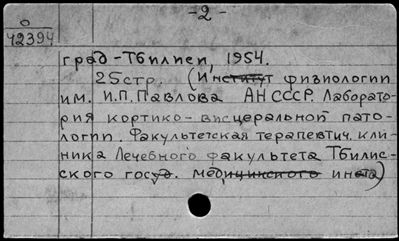 -2-
0
42394
град-Тбилиси, 1954.
25стр. (Институт физиологии
им. И.П.Павлова АН СССР. Лаборато-
рия кортико-висцеральной пато-
логии. Факультетская терапевтич. кли-
ника Лечебного факультета Тбилис-
ского госуд. медицинского ин-та)